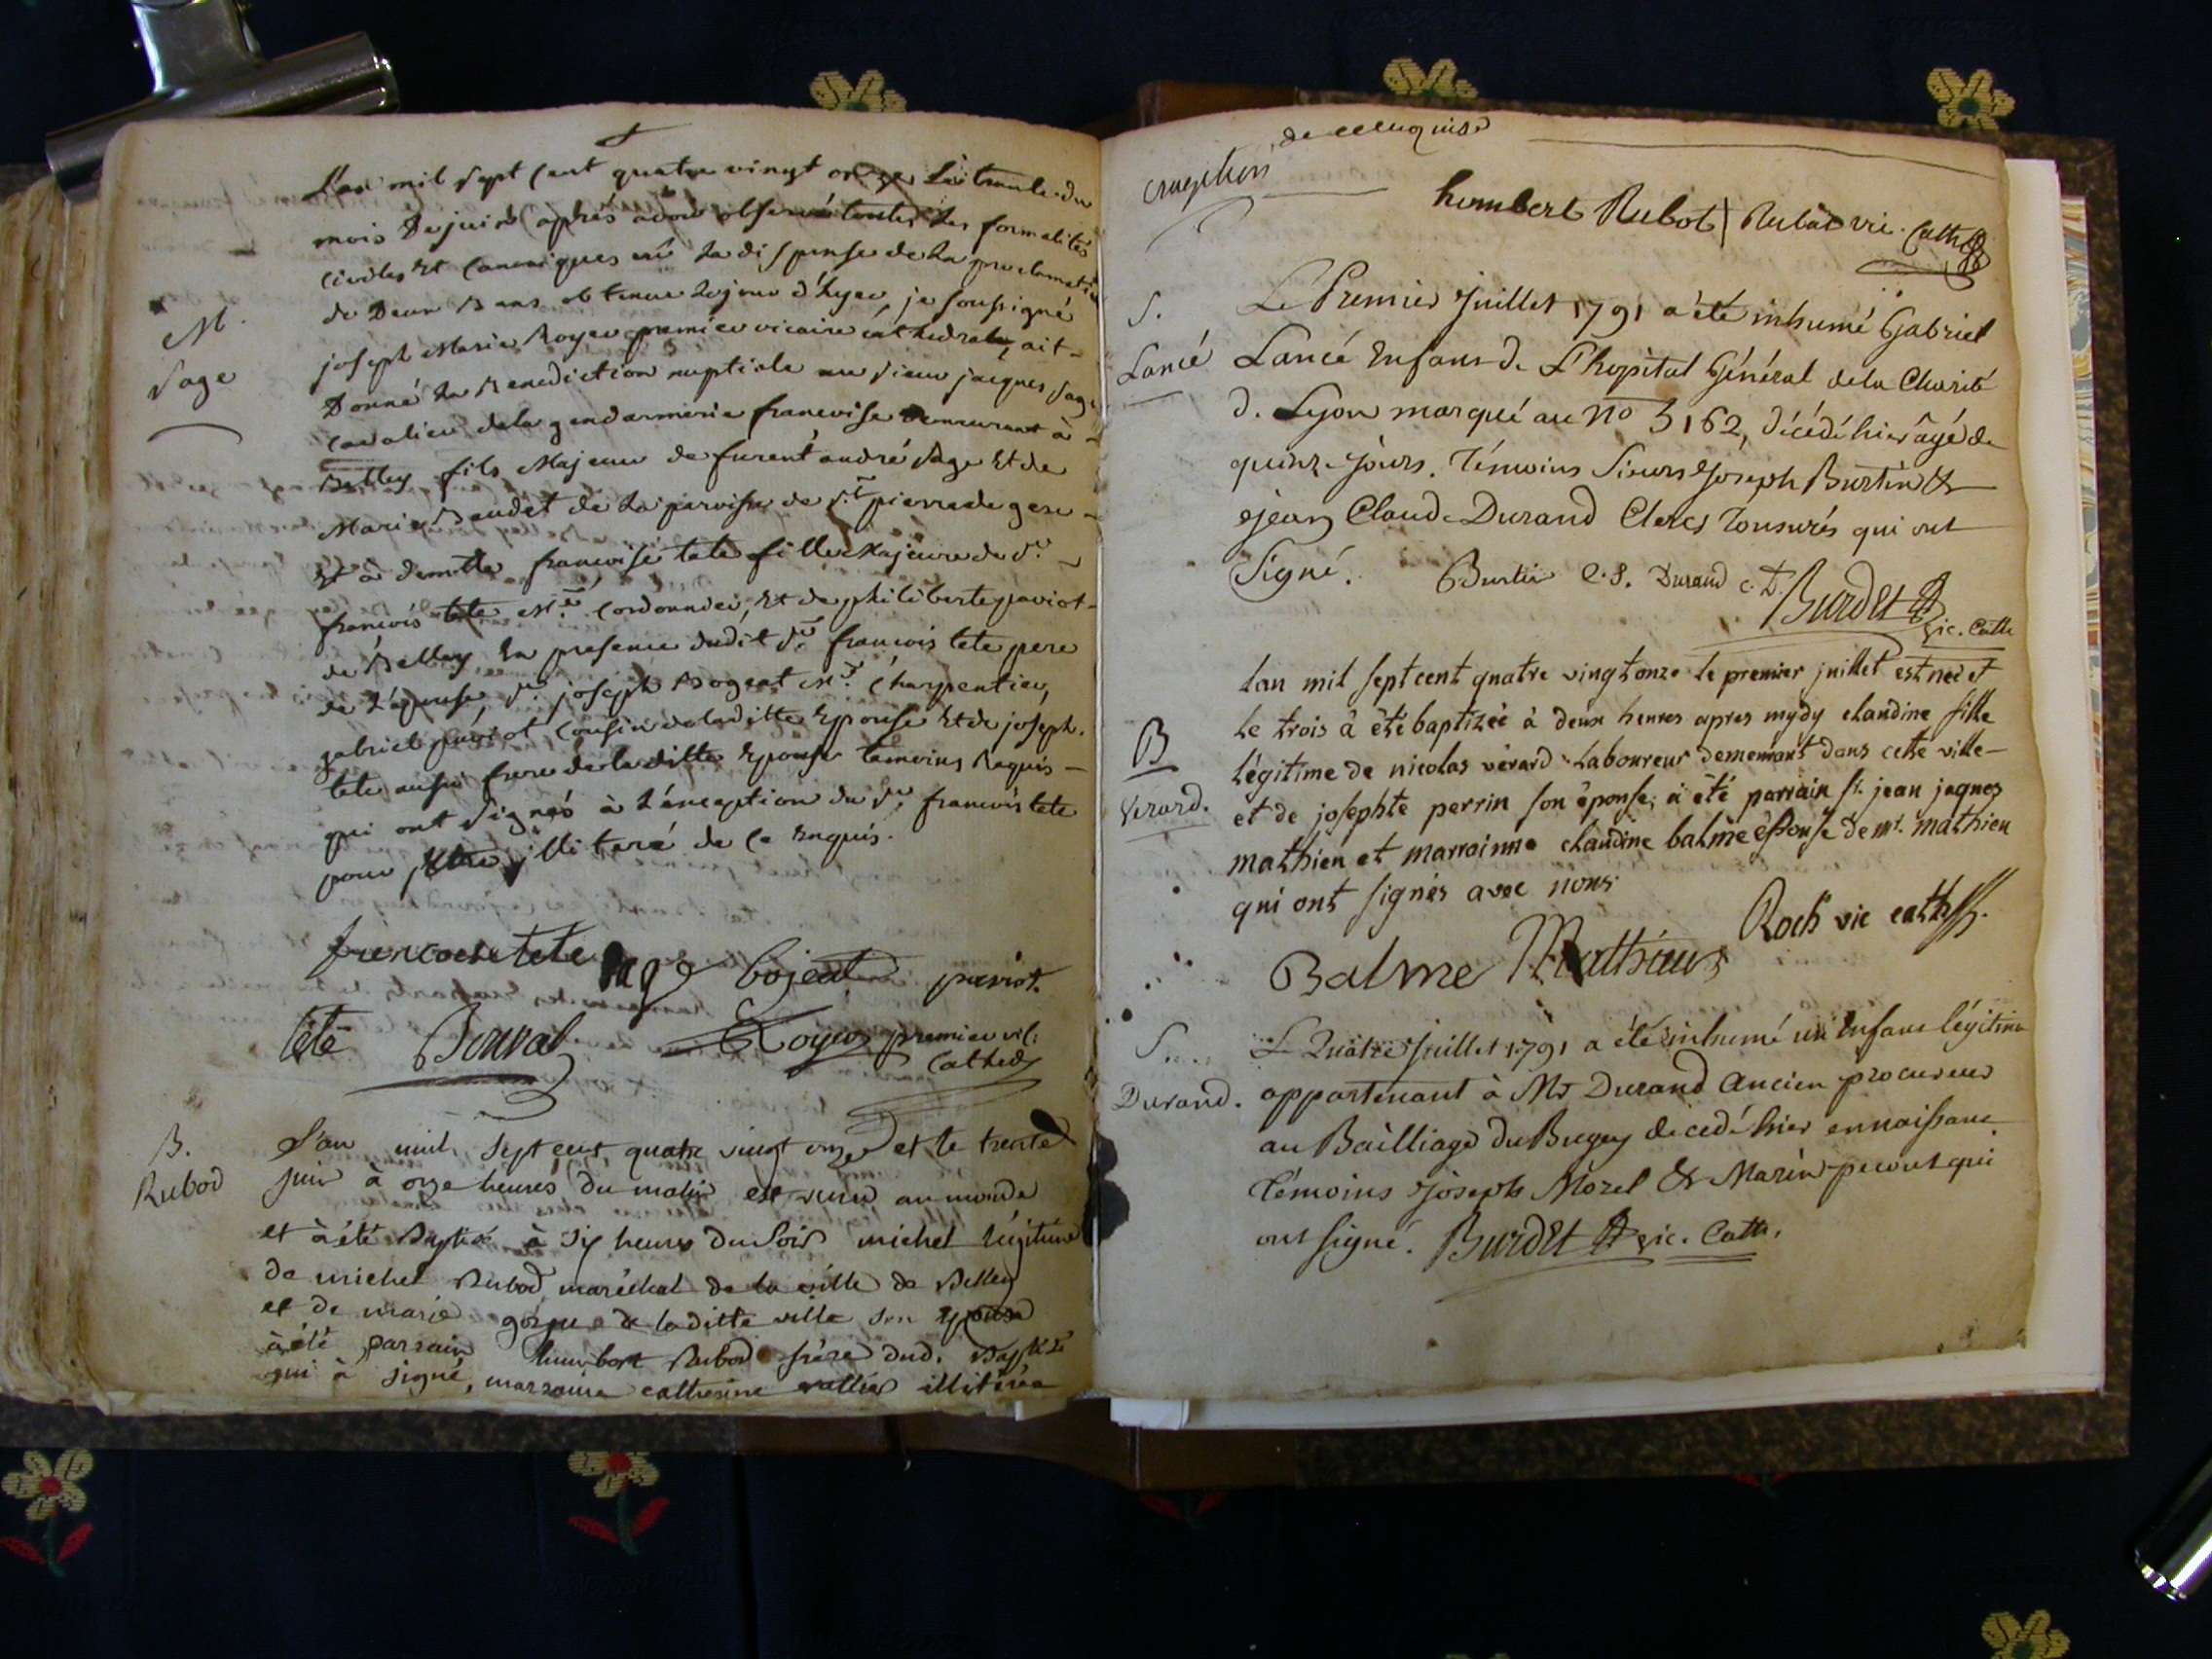 L'an mil sept cent quatre vingt onze Le trente du
mois de juin après avoir observé toutes les formalités
civiles et canoniques vû la dispense de la proclamation
de deux Bans obtenue le jour d'hyer, je soussigné
joseph Marie Royer premier vicaire cathedrale, ait
M.
Sage
Donné la Benediction nuptiale au sieur jacques Sage
cavalier de la gendarmerie francoise demeurant à
Belley fils Majeur de furent andré Sage Et de
Marie Baudet de la paroisse de St pierre de
Et à demlle francoise tete fille Majeure de Sr
francois tete Me Cordonnier, Et de philiberte paviot
de Belley En presence dudit Sr francois tete pere
de L'epouse, Sr joseph Bogeat Me Charpentier,
gabriel paviot cousin de laditte Epouse Et de joseph
tete aussi frere de la ditte Epouse temoins Requis
qui ont Signés à L'exception du Sr francois tete
pour être illiteré de ce Enquis.
francoise tete Sage bojeat paviot.
tété Bonval Royer premier vic:
Cathed
B.
Rubod
L'an mil sept cent quatre vingt onze et le trente
juin à onze heures du matin est venu au monde
et à été Baptisé à six heures du Soir michel légitime
de michel Rubod maréchal de la ville de Belley
et de marie de laditte ville son Epouse
à été parrain humbert Rubod frère dud. Baptisé
qui à signé, marraine catherine vallier illitérée
de ce enquise
humbert Rubot Rubat vic. Cath
S.
Lancé
Le Premier Juillet 1791 a été inhumé Gabriel
Lancé Enfant de L'hopital Général de la Charité
de Lyon marqué au No 3162, décédé hier âgé de
quinze jours. Témoins Sieurs Joseph Burtin &
Jean Claude Durand Clercs Tonsurés qui ont
Signé. Burtin C.S. Durand C.T.
Burdet Vic. Cath
B
Verard.
Lan mil sept cent quatre vingt onze le premier juillet est née et
le trois à été baptizée à deux heures apres mydy claudine fille
légitime de nicolas vérard Laboureur demeurant dans cette ville
et de josephte perrin son épouse; à été parrain Sr. jean jaques
mathieu et marrainne claudine balme épouse de mr. mathieu
qui ont signés avec nous
Roch vic cath.
Balme Mathieu
S.
Durand.
Le Quatre Juillet 1791 a été inhumé un Enfant légitime
appartenant à Mr Durand Ancien procureur
au Bailliage du Bugey décédé hier en naissant
Témoins Joseph Morel & Marin qui
ont signé. Burdet Vic. Cath.